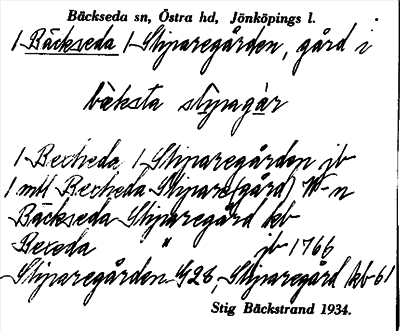 Bäckseda sn, Östra hd, Jönköpings l.
1 Bäckseda 1 Stiparegården, gård i
bæksta stipagár
1 Bexheda 1 Stiparegården jb
1 mtl Bexheda Stipare(gård)
Bäckseda Stiparegård kb
Bexeda " jb 1766
Stiparegården G28, Stiparegård kb 61
Stig Bäckstrand 1934.